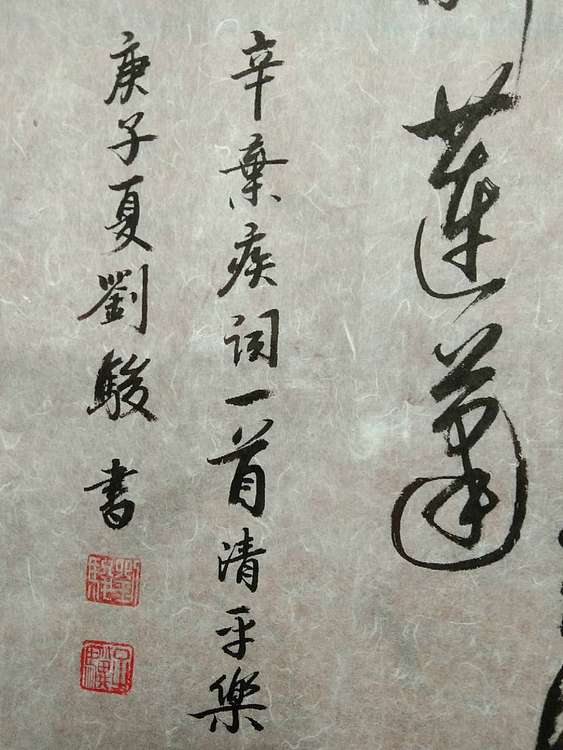 蓮蓬
辛棄疾詞一首清平樂
庚子夏劉駿書